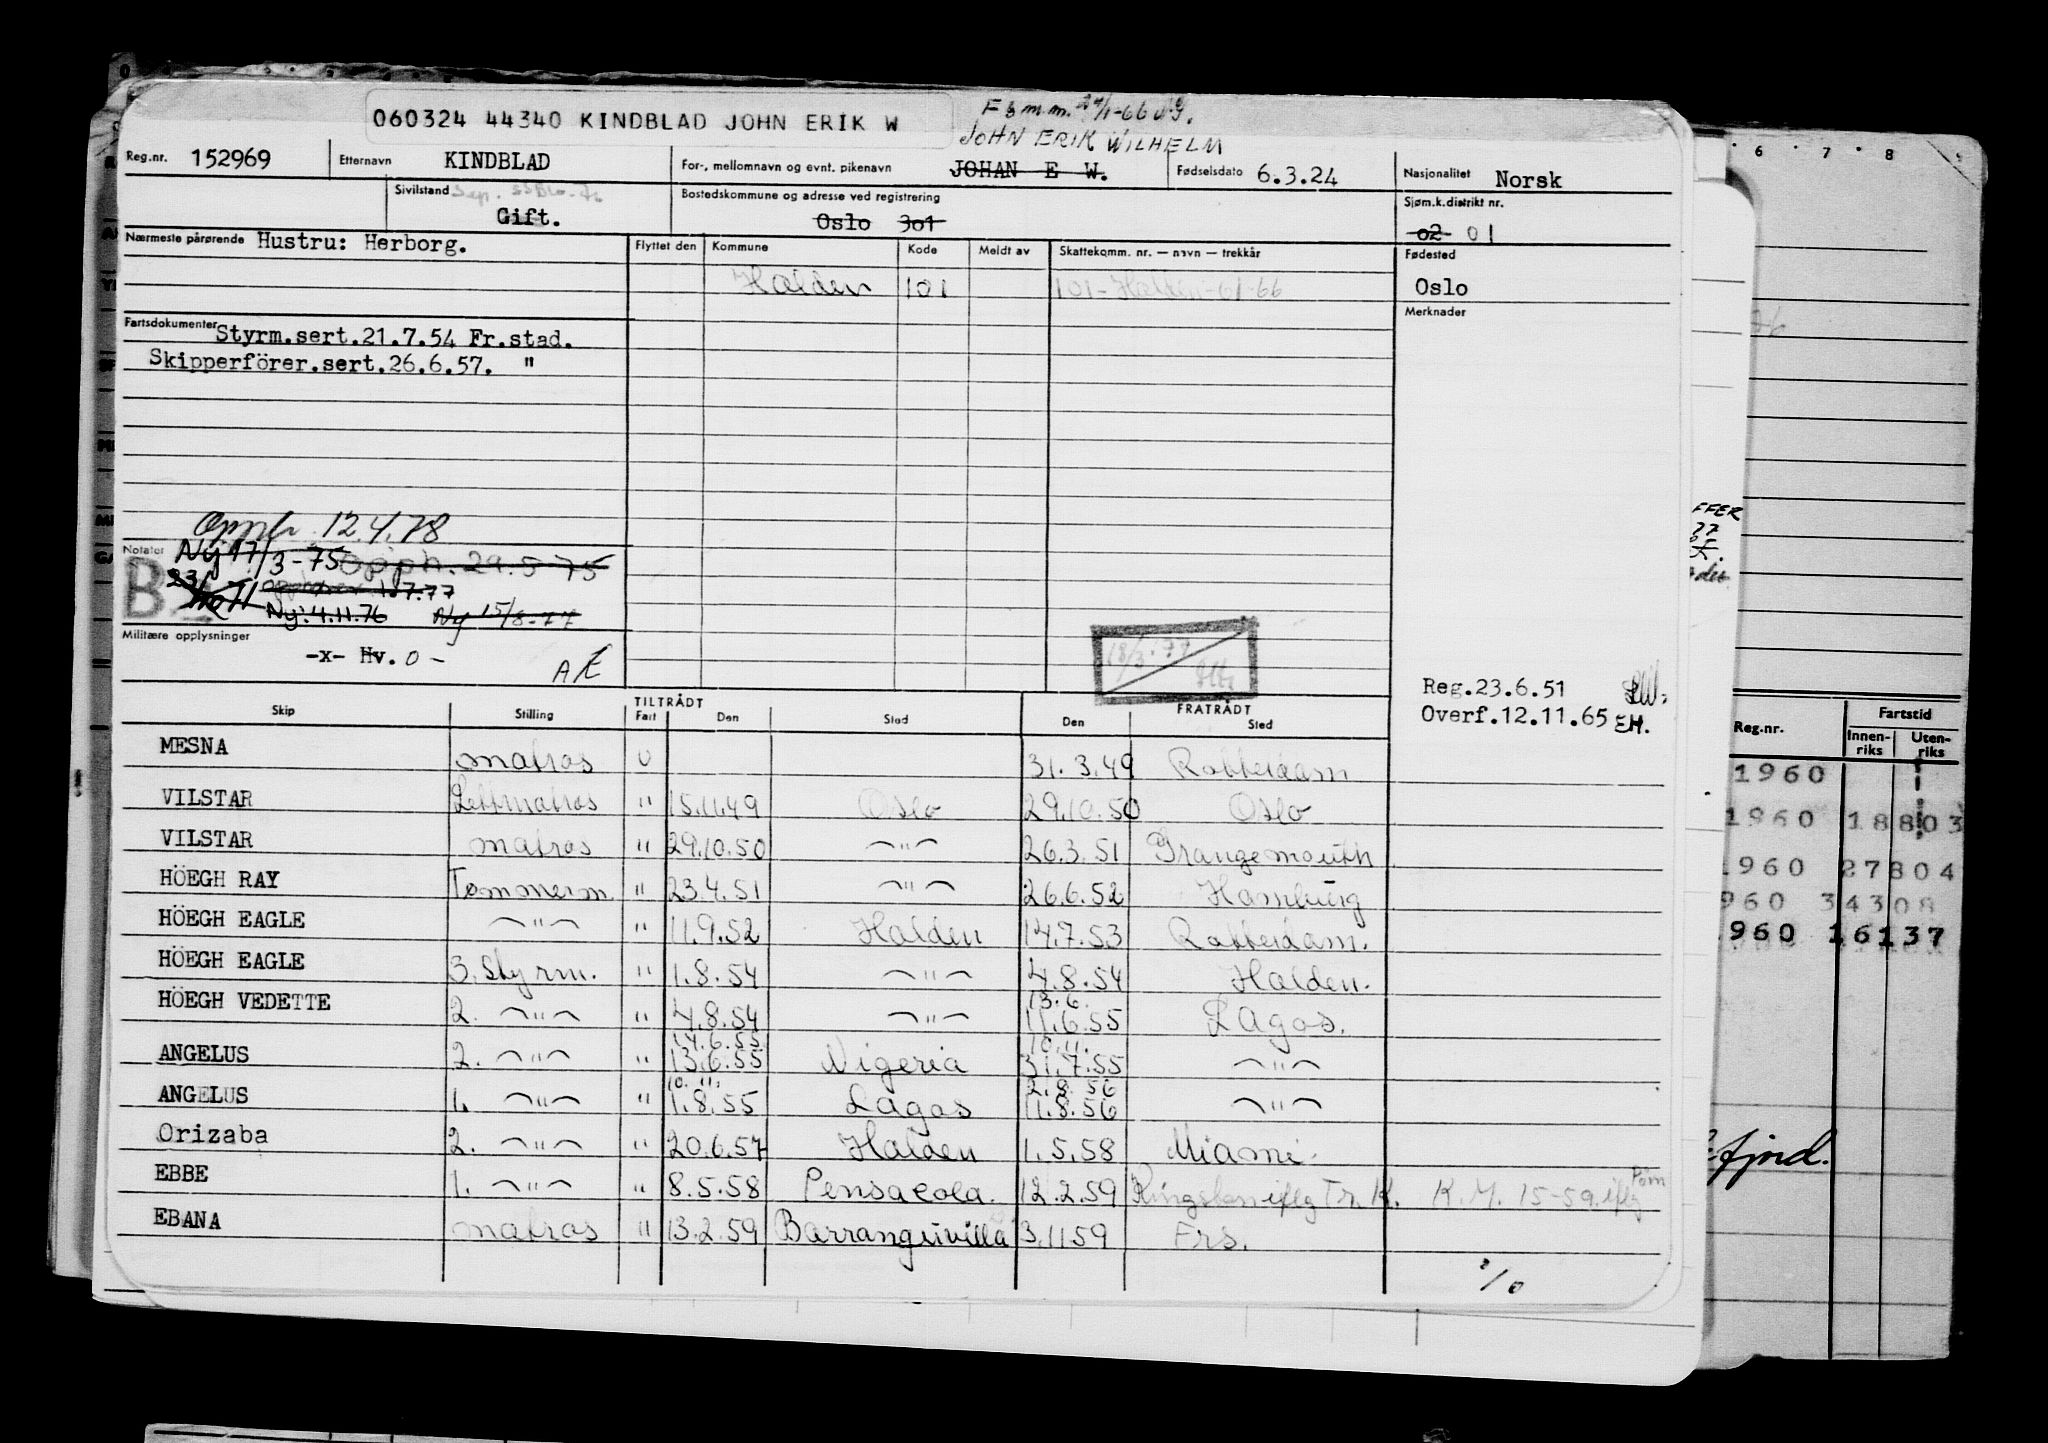 060324 44340 KINDBLAD JOHN ERIK W
JOHN ERIK WILHELM
Reg.nr. 152969 Etternavn KINDBLAD For-, mellomnavn og evnt. pikenavn JOHAN E W. Fødselsdato 6.3.24 Nasjonalitet Norsk
Sivilstand Sep. Gift. Bostedskommune og adresse ved registrering Oslo 301 Sjøm.k.distrikt nr. 02 01
Nærmeste pårørende Hustru: Herborg. Flyttet den Kommune Kode Meldt av Skattekomm. nr. — navn — trekkår Fødested
Halden 101 101-Halden-01-66 Oslo
Fartsdokumenter Styrm.sert.21.7.54 Fr.stad. Merknader
Skipperförer.sert.26.6.57. "
Opph. 12.4.78
Notater Ny 17/3-75 Opph. 29.5 75
B 7.77
Ny: 4.11.76 Ny 15/8-77
Militære opplysninger
-x- Hv. 0 -
AÆ
18/3.77
Reg.23.6.51
Overf.12.11.65 EH.
Skip Stilling TILTRÅDT Fart Den Sted FRATRÅDT Den Sted
MESNA matros U 31.3.49 Rotterdam
VILSTAR Lettmatros " 15.11.49 Oslo 29.10.50 Oslo
VILSTAR matros " 29.10.50 —"— 26.3.51 Grangemouth
HÖEGH RAY Tømmerm. " 23.4.51 —"— 26.6.52 Hamburg
HÖEGH EAGLE —"— " 11.9.52 Halden 14.7.53 Rotterdam.
HÖEGH EAGLE 3. Styrm. " 1.8.54 —"— 4.8.54 Halden.
13.6.
HÖEGH VEDETTE 2. —"— " 4.8.54 —"— 11.6.55 Lagos.
14.6.55 10.11.
ANGELUS 2. —"— " 13.6.55 Nigeria 31.7.55 —"—
10.11. 2.8.56
ANGELUS 1. —"— " 1.8.55 Lagos 11.8.56 —"—
Orizaba 2. —"— " 20.6.57 Halden 1.5.58 Miami.
EBBE 1. —"— " 8.5.58 Pensacola. 12.2.59 Kingston iflg Tr.K. K.M. 15-59 iflg
EBANA matros " 13.2.59 Barranquvilla 3.11.59 Frs.
6 7 8
FFER
Reg.nr. Fartstid
Innenriks Utenriks
1960
1960 18803
1960 27804
960 34308
960 16137
fjord.